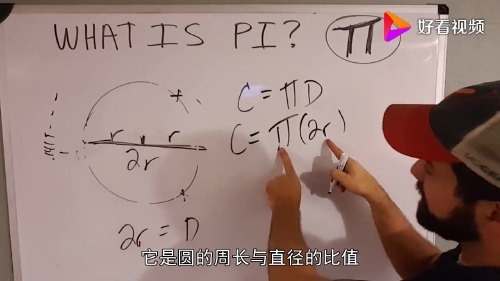 WHAT IS PI? π
好看视频
C = πD
C = π(2r)
r r
2r
2r = D
它是圆的周长与直径的比值